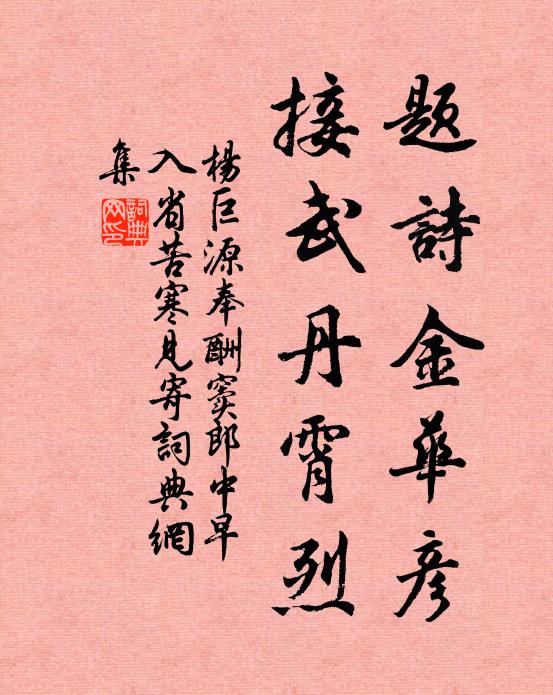 題詩金華彥
接武丹霄烈
楊巨源奉酬竇郎中早
入省苦寒見寄詞典網
集
詞典
网印